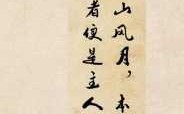 山风月，本
者便是主人